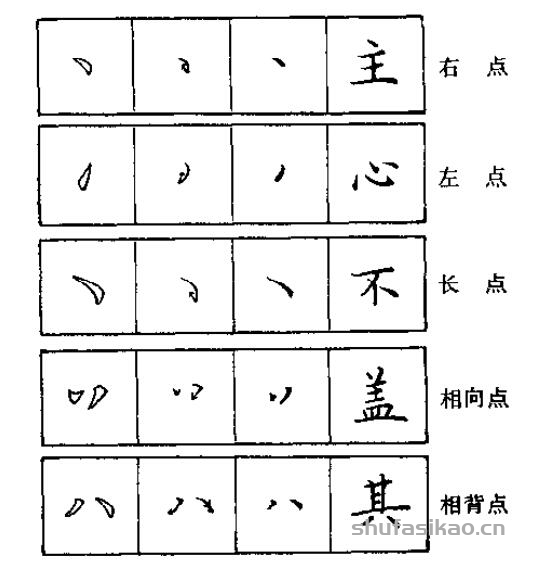 主 右点
心 左点
不 长点
盖 相向点
其 相背点
shufasikao.cn